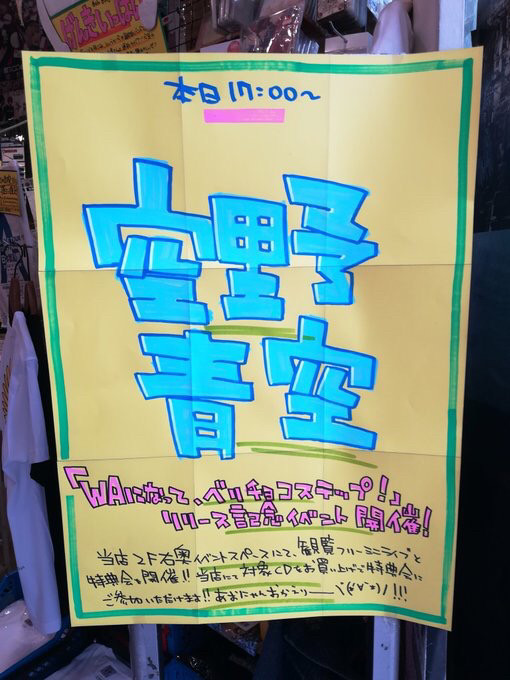 げんきいっぱい
本日17:00〜
空野
青空
「WAになって、ベリチョコステップ!」
リリース記念イベント開催!
当店2F右奥イベントスペースにて、観覧フリーミニライブと
特典会を開催!!当店にて対象CDをお買い上げで特典会に
ご参加いただけます!!あおにゃんおかえりーーヽ(*´∀`*)ノ!!!